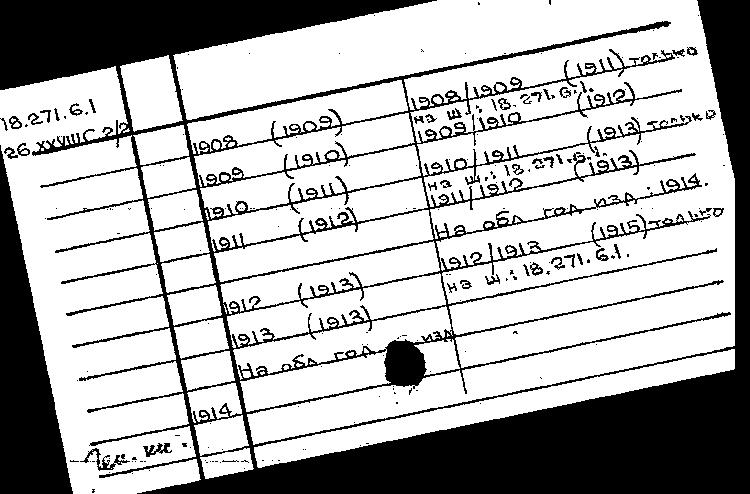 18.271.6.1
26.XXVIIIС 2/2
1908 (1909)
1909 (1910)
1910 (1911)
1911 (1912)
1912 (1913)
1913 (1913)
На обл год изд
1914
1908/1909 (1911) только
на ш.: 18.271.6.1.
1909/1910 (1912)
1910/1911 (1913) только
на ш.: 18.271.6.1.
1911/1912 (1913)
На обл год изд: 1914.
1912/1913 (1915) только
на ш.: 18.271.6.1.